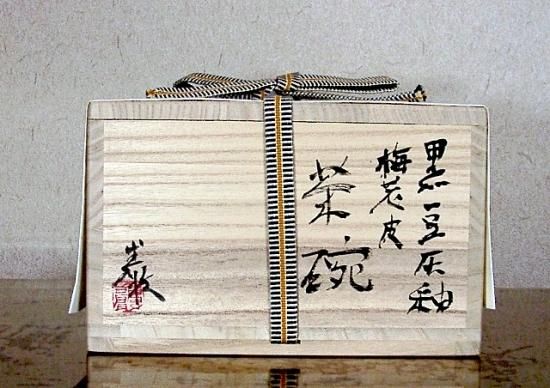 黒豆灰釉
梅花皮
茶碗